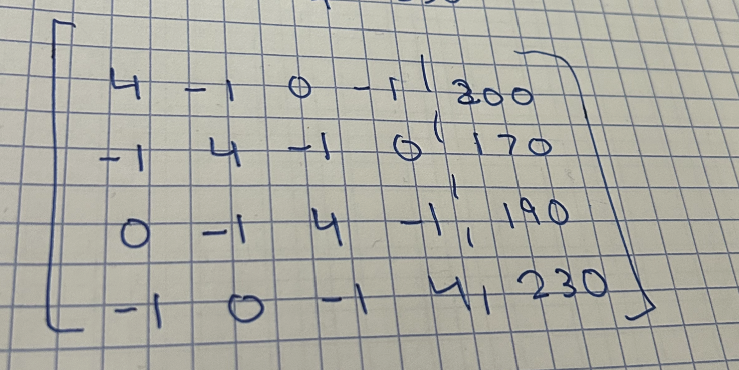 4 -1 0 -1 | 200
-1 4 -1 0 | 170
0 -1 4 -1 | 190
-1 0 -1 4 | 230